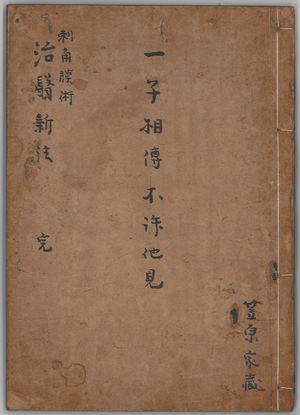 原家藏
一子相傳不許他見
刺角膜術
治翳新法 完